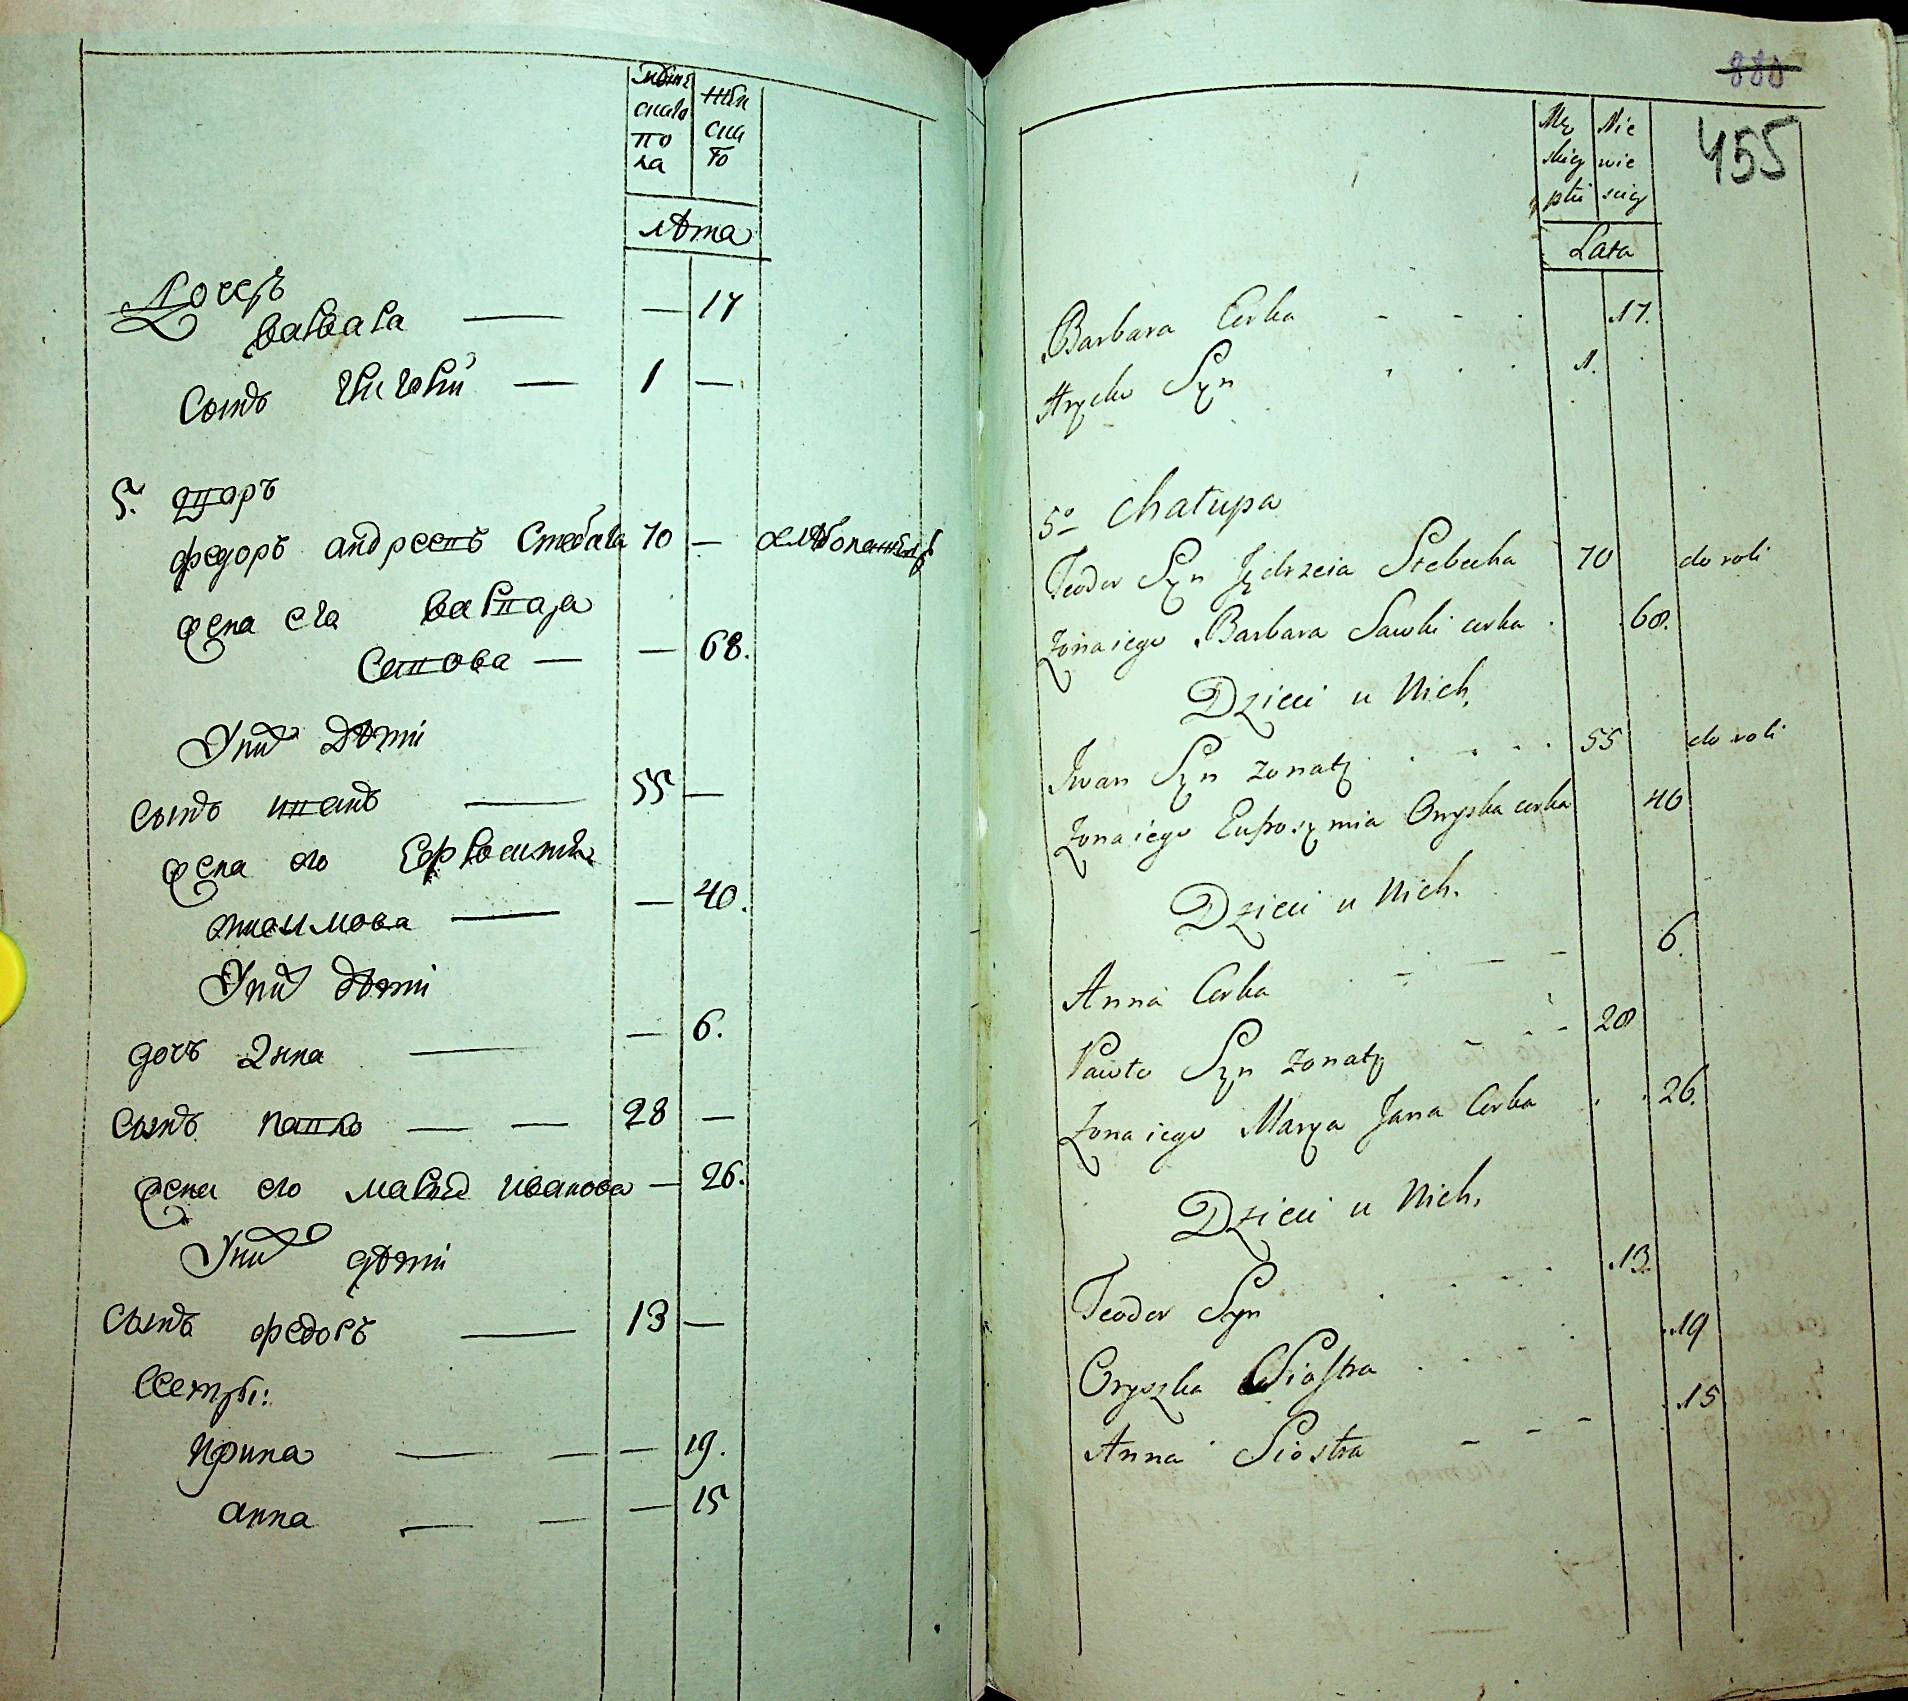 мужес
скаго
по
ла
жен
ска
го
лѣта
Дочерь
варвара — — 17
Сынъ григорий — 1 —
5. дворъ
федоръ андреевъ Стебаха 70 — хлѣбопашецъ
жена его варвара
Савова — — 68.
У них дѣти
сынъ иванъ — 55 —
жена его Ефросинія
онисимова — — 40.
У них дѣти
дочь Анна — — 6.
сынъ павло — — 28 —
жена его мария иванова — 26.
У них дѣти
сынъ федоръ — 13 —
сестры:
ирина — — — 19.
анна — — — 15
880
455
Mę
skiey
płci
Nie
wie
sciey
Lata
Barbara Corka - - . 17.
Hryćko Syn . . . 1.
5o Chałupa
Teodor Syn Jędrzeia Stebecha 70 do roli
Zona iego Barbara Sawki corka . 68.
Dzieci u Nich.
Iwan Syn zonaty . . . . 55 do roli
Zona iego Eufrozymia Onyska corka 40
Dzieci u Nich.
Anna Corka - — — 6.
Pawło Syn zonaty - - - 28
Zona iego Marya Jana Corka . . 26.
Dzieci u Nich,
Teodor Syn . . . . 13.
Oryszka Siostra . . . . 19
Anna Siostra - - - 15